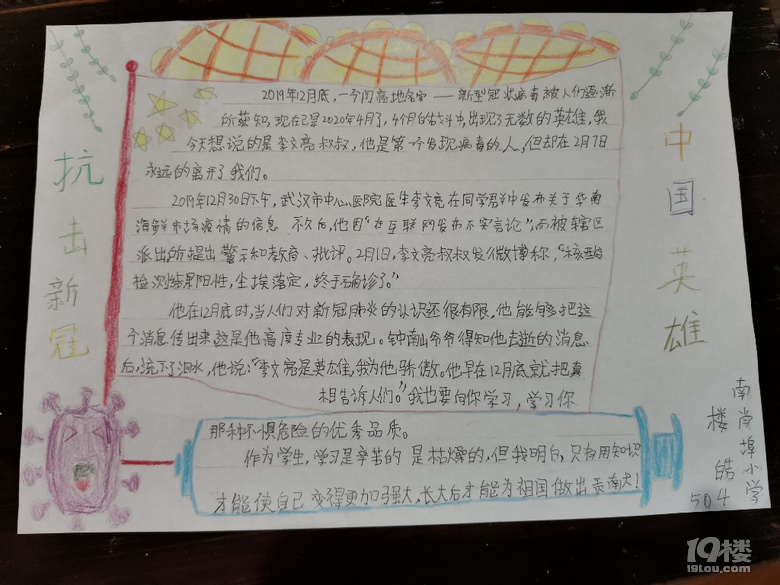 抗击新冠
中国英雄
2019年12月底,一个闪亮地名字——新型冠状病毒被人们逐渐
所获知,现在已是2020年4月了,4个月的战斗中,出现了无数的英雄,我
今天想说的是李文亮叔叔,他是第一个发现病毒的人,但却在2月7日
永远的离开了我们。
2019年12月30日下午,武汉市中心医院医生李文亮在同学群中发布关于华南
海鲜市场疫情的信息 不久后,他因“在互联网发布不实言论”,而被辖区
派出所提出警示和教育、批评。2月1日,李文亮叔叔发微博称,“核酸
检测结果阳性,尘埃落定,终于确诊了。”
他在12月底时,当人们对新冠肺炎的认识还很有限,他能够把这
个消息传出来这是他高度专业的表现。钟南山爷爷得知他去逝的消息
后,流下了泪水,他说:“李文亮是英雄,我为他骄傲。他早在12月底就把真
相告诉人们。”我也要向你学习,学习你
那种不惧危险的优秀品质。
作为学生,学习是辛苦的 是枯燥的,但我明白,只有用知识
才能使自己变得更加强大,长大后才能为祖国做出贡献!
南肖埠小学
504 楼皓
19楼
19lou.com